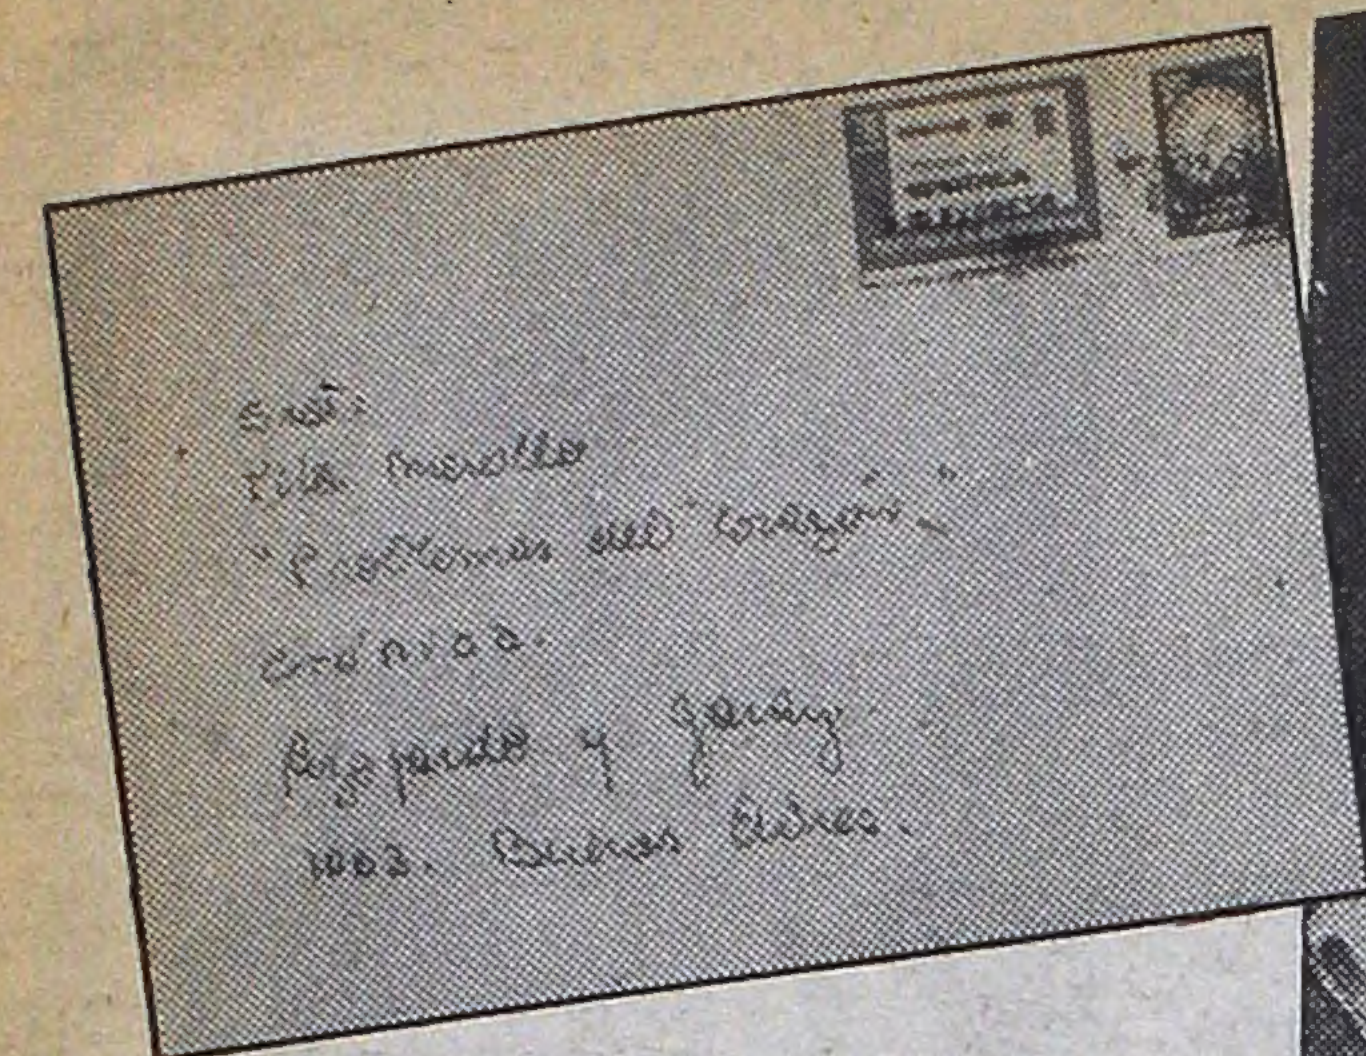 Srta:
Rita Morello
"Problemas del Corazón"
Crónica.
Azopardo y Garay.
1063. Buenos Aires.